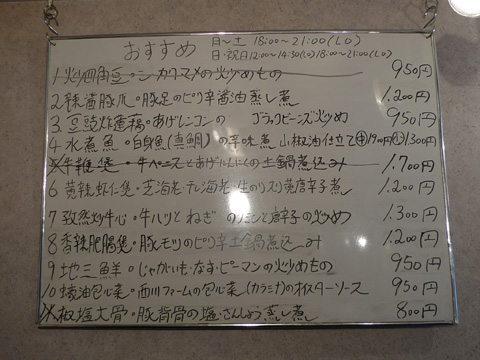 おすすめ 日〜土 18:00〜21:00(LO)
日・祝日12:00〜14:30(LO)18:00〜21:00(LO)
1 炒四角豆・シカクマメの炒めもの 950円
2 辣醤豚爪・豚足のピリ辛醤油蒸し煮 1,200円
3 豆豉炸蓮藕・あげレンコンの ブラックビーンズ炒め 950円
4 水煮魚・白身魚(真鯛)の辛味煮 山椒油仕立て 中1900円 小1300円
牛ハラミとあげにんにくの土鍋煮込み 1,700円
6 黄辣蝦仁煲・芝海老・干し海老・生のりスリ黄唐辛子煮 1,200円
7 孜然炒牛心・牛ハツとねぎのクミンと唐辛子の炒め 1,300円
8 香辣肥腸煲・豚モツのピリ辛土鍋煮込み 1,200円
9 地三鮮・じゃがいも・なす・ピーマンの炒めもの 950円
10 蠔油包心菜・西川ファームの包心菜(カラシナ)のオイスターソース 950円
椒塩大骨・豚背骨の塩・さんしょう蒸し煮 800円